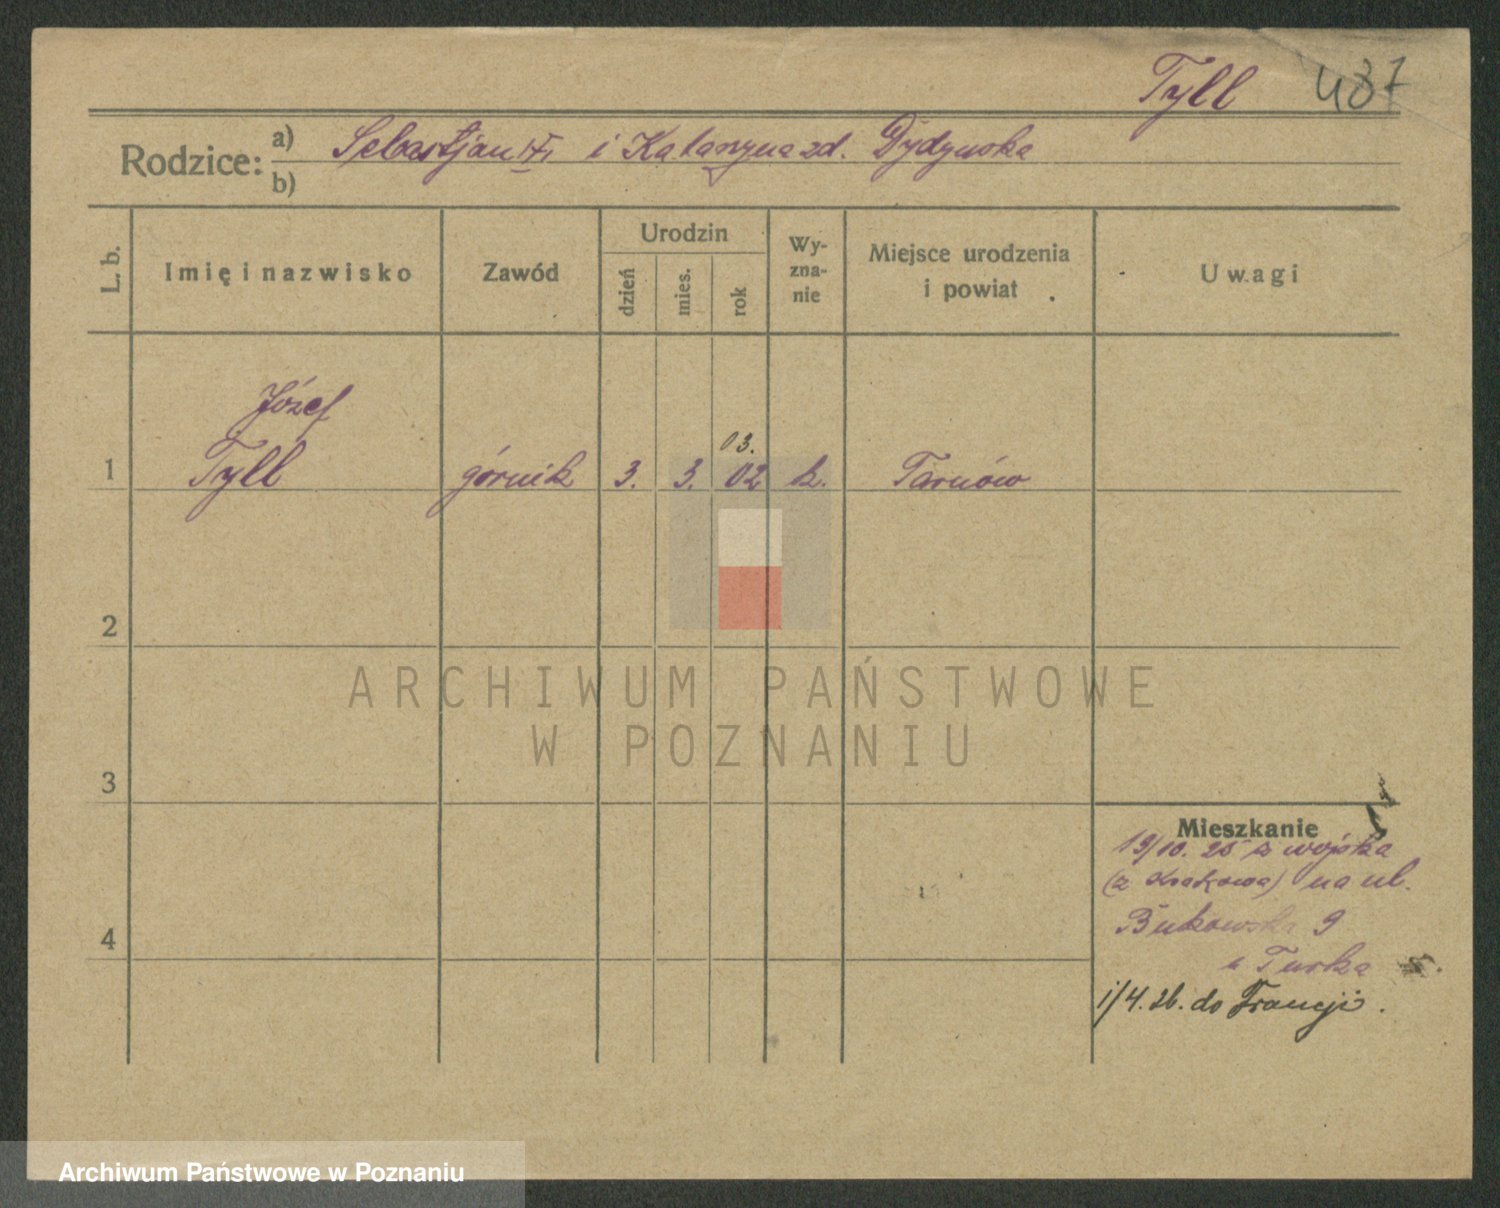 Tyll 487
Rodzice: a) Sebastjan i Katarzyna zd. Dydynska
b)
L. b.
Imię i nazwisko
Zawód
Urodzin
dzień
mies.
rok
Wy-
zna-
nie
Miejsce urodzenia
i powiat
Uwagi
Józef
03.
1 Tyll górnik 3. 3. 02 k. Tarnów
2
3
4
ARCHIWUM PAŃSTWOWE
W POZNANIU
Mieszkanie
19/10. 25 z wojska
(z Krakowa) na ul.
Bukowska 9
u Turka
1/4. 26. do Francji.
Archiwum Państwowe w Poznaniu